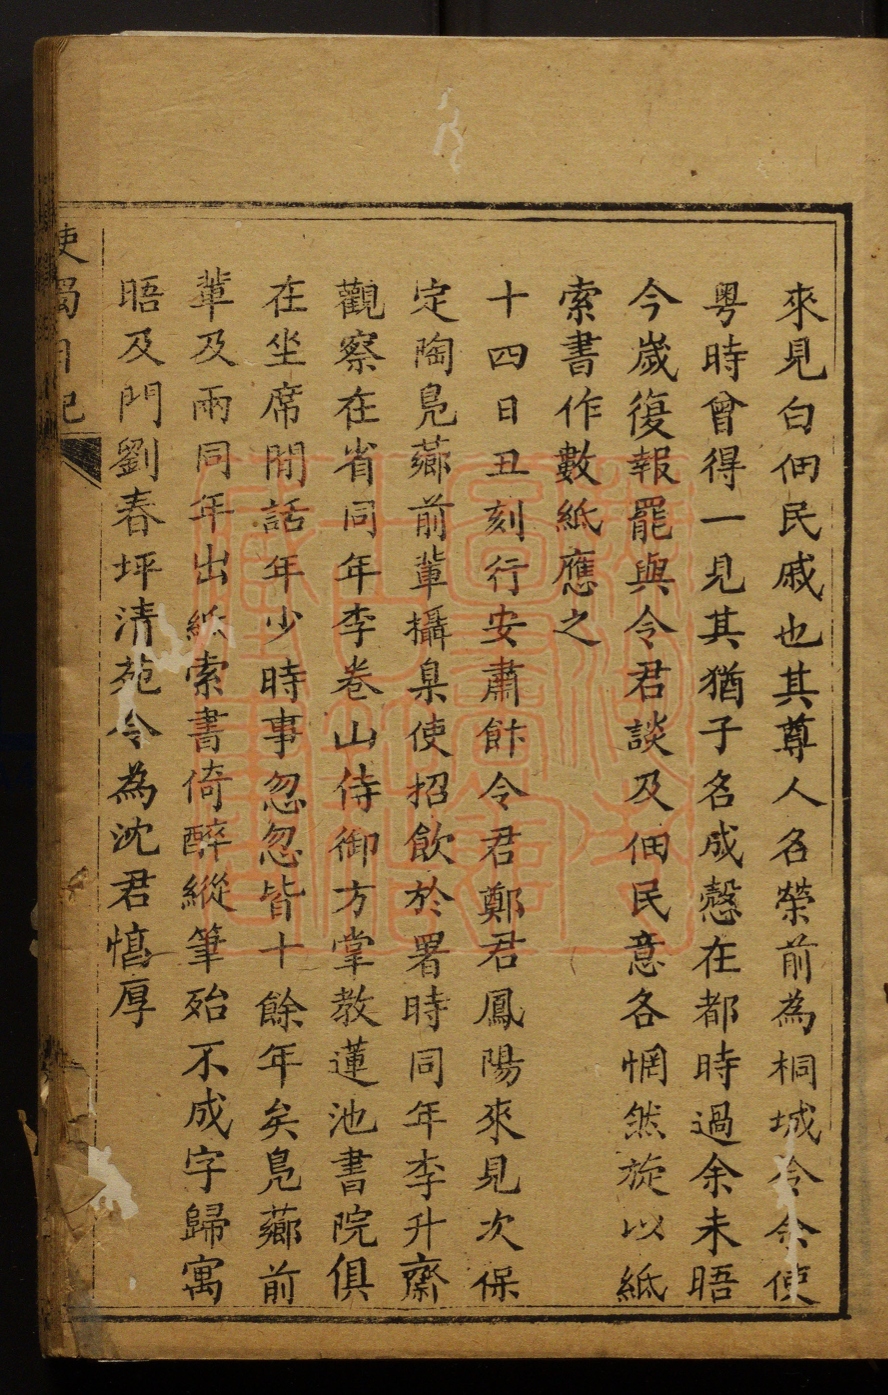 來見白佃民戚也其尊人名榮前為桐城令余使
粵時曾得一見其猶子名成慤在都時過余未晤
今歲復報罷與令君談及佃民意各惘然旋以紙
索書作數紙應之
十四日丑刻行安肅飰令君鄭君鳳陽來見次保
定陶鳧薌前輩攝臬使招飲於署時同年李升齋
觀察在省同年李卷山侍御方掌教蓮池書院俱
在坐席間話年少時事忽忽皆十餘年矣鳧薌前
輩及兩同年出紙索書倚醉縱筆殆不成字歸寓
晤及門劉春坪清苑令為沈君慎厚
使蜀日記